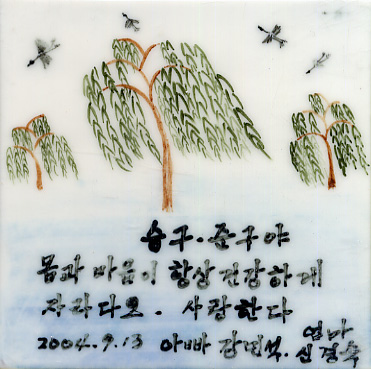 승구·준구야
몸과 마음이 항상 건강하게
자라다오. 사랑한다
2004.9.13 아빠 강민석. 엄마 신경숙